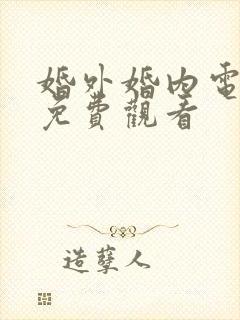 婚外婚内電
免費觀看
造孽人